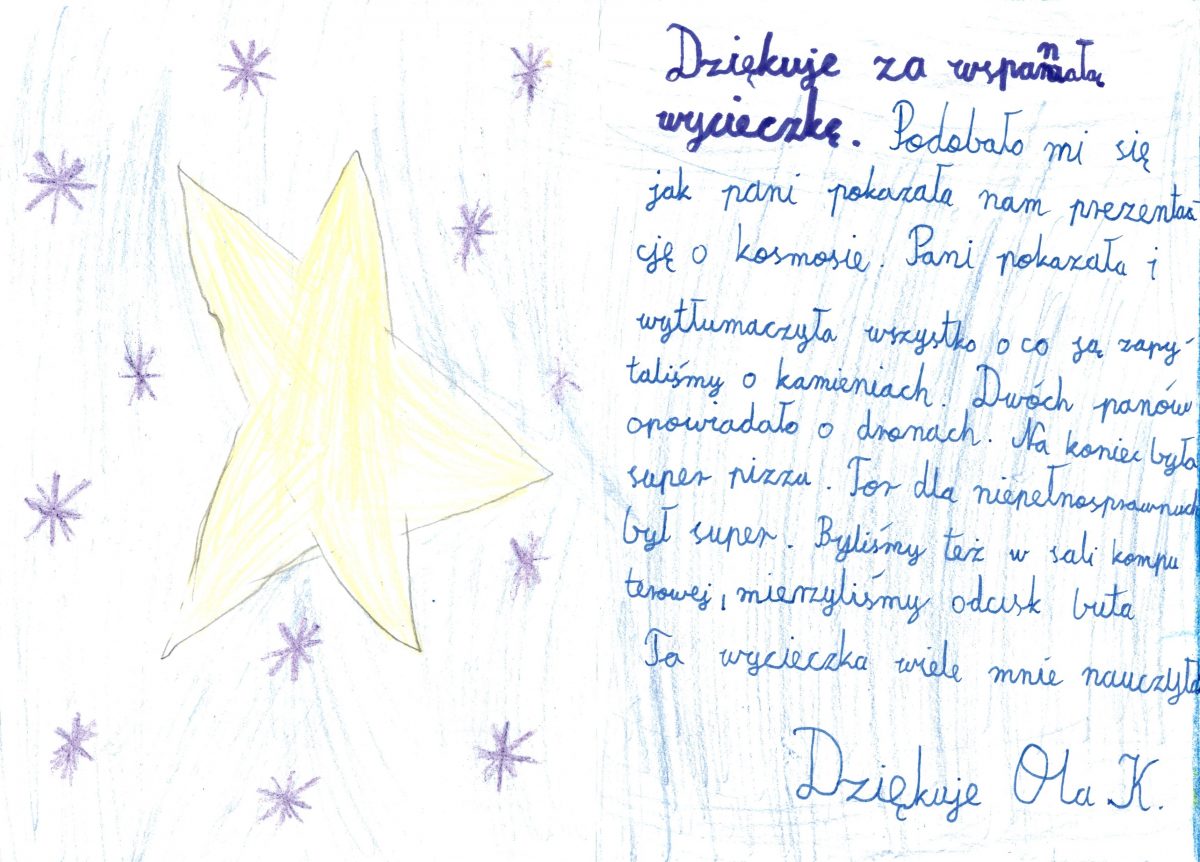 Dziękuje za wspaniałą
wycieczkę. Podobało mi się
jak pani pokazała nam prezenta
cję o kosmosie. Pani pokazała i
wytłumaczyła wszystko o co ją zapy-
taliśmy o kamieniach. Dwóch panów
opowiadało o dronach. Na koniec była
super pizza. Tor dla niepełnosprawnych
był super. Byliśmy też w sali kompu
terowej, mierzyliśmy odcisk buta
Ta wycieczka wiele mnie nauczyła
Dziękuje Ola K.